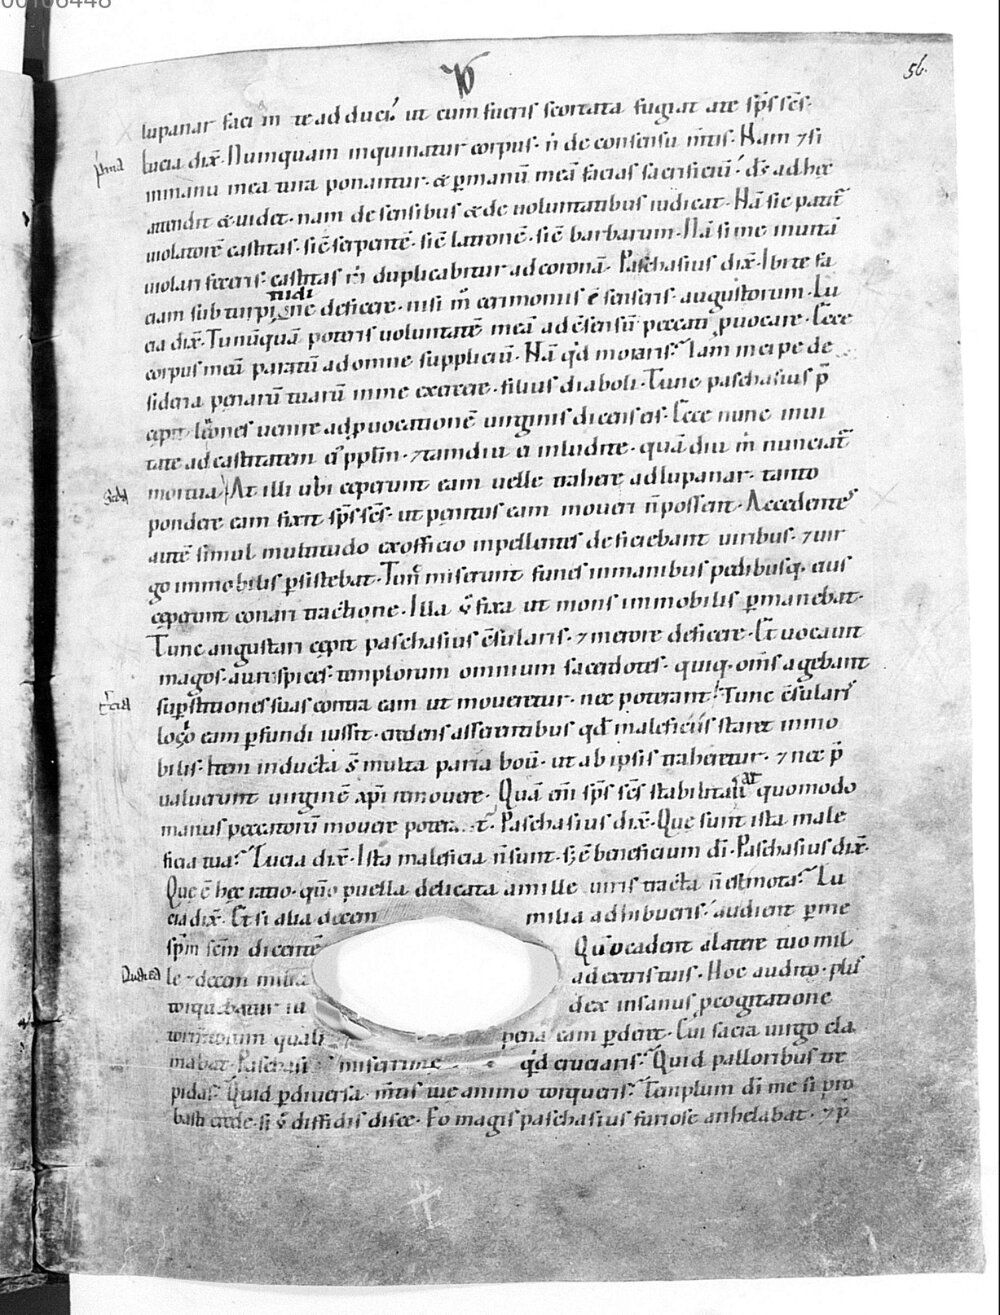 00106448
56.
lupanar faciā te adduci. ut cum fueris scortata fugiat a te sp̄s sc̄s.
Lucia dix̄. Numquam inquinatur corpus. n̄ de consensu m̄tis. Nam ⁊ si
in manu mea tura ponantur. & p̄ manū meā facias sacrificiū. dš ad hęc
attendit & uidet. nam de sensibus & de uoluntatibus iudicat.
uiolatorē castitas. sic̄ serpentē. sic̄ latronē. sic̄ barbarum. Nā si me inuitā
uiolari feceris. castitas m̄ duplicabitur ad coronā. Paschasius dix̄. Ibi te fa
ciam sub turpi deficere. nisi senseris augustorum. Lu
cia dix̄. poteris uoluntatē meā ad c̄sensū peccati puocare. Ecce
corpus meū paratū ad omne suppliciū. Nā qd̄ moraris? Iam incipe de
sideria penarū tuarū in me exercere. filius diaboli. Tunc paschasius p̄
cępit lęnones uenire ad puocationē uirginis dicens eis. Ecce nunc inui
tate ad castitatem ⁊ tamdiu ei inludite. quādiu m̄ nunciat̄
mortua. At illi ubi ceperunt eam uelle trahere ad lupanar. tanto
pondere eam fixit sp̄s sc̄s. ut penitus eam moueri n̄ possent. Accedentes
autē simul multitudo ex officio inpellentes deficiebant uiribus. ⁊ uir
go immobilis p̄sistebat. miserunt funes in manibus pedibusq. eius
ceperunt conari tractione. Illa ū fixa ut mons immobilis p̄manebat.
Tunc angustari cępit paschasius c̄sularis. ⁊ merore deficere. Et uocauit
magos. aurispices. templorum omnium sacerdotes. quiq. om̄s agebant
sup̄stitiones suas contra eam ut moueretur. nec poterant. Tunc c̄sularis
lotio eam p̄fundi iussit. credens asserentibus qd̄ maleficiis staret inmo
bilis. Item inducta s̄ multa paria boū. ut ab ipsis traheretur. ⁊ nec p̄
ualuerunt uirginē xp̄i remouere. Quā em̄ sp̄s sc̄s stabilitat quomodo
manus peccatorū mouere potera..t. Paschasius dix̄. Que sunt ista male
ficia tua? Lucia dix̄. Ista maleficia n̄ sunt. s; ē beneficium dī. Paschasius dix̄.
Que ē hęc ratio. quō puella delicata a mille uiris tracta n̄ est mota? Lu
cia dix̄. Et si alia decem milia adhibueris. audient p̄ me
sp̄m sc̄m dicentē Quō cadent a latere tuo mil
le ⁊ decem milia a dextris tuis. Hoc audito. plus
torquebatur iu dex insanus p̄cogitatione
tormentorum quali pena eam p̄deret. Cui sacra uirgo cla
mabat. Paschasi miserrime qd̄ cruciaris? Quid palloribus tre
pidas? Quid p̄ diuersa m̄tis tue animo torqueris? Templum dī me si pro
basti crede. si ū diffidis disce. Eo magis paschasius furiose anhelabat. ⁊ p̄